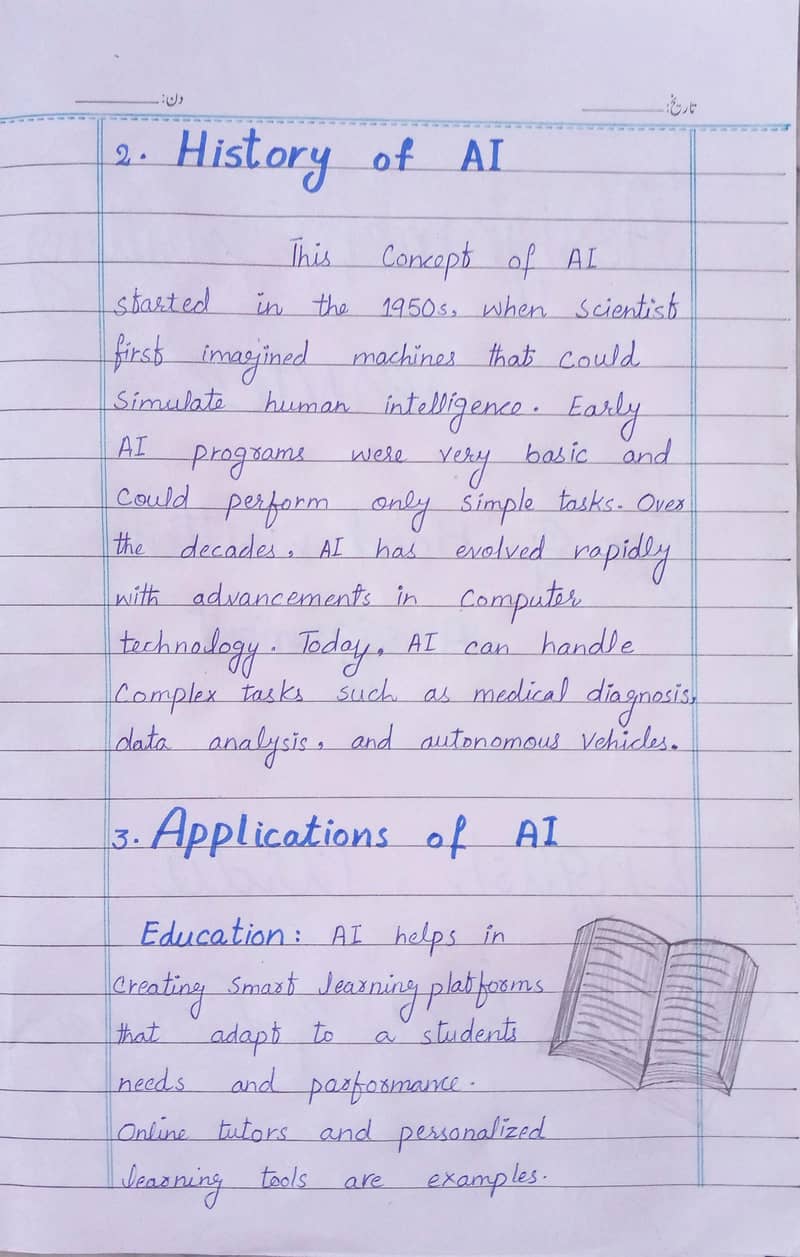 دن: تاریخ:
2. History of AI
This Concept of AI
started in the 1950s, when scientist
first imagined machines that could
simulate human intelligence. Early
AI programs were very basic and
could perform only simple tasks. Over
the decades, AI has evolved rapidly
with advancements in computer
technology. Today, AI can handle
complex tasks such as medical diagnosis,
data analysis, and autonomous vehicles.
3. Applications of AI
Education: AI helps in
creating smart learning platforms
that adapt to a students
needs and parformance.
Online tutors and personalized
learning tools are examples.